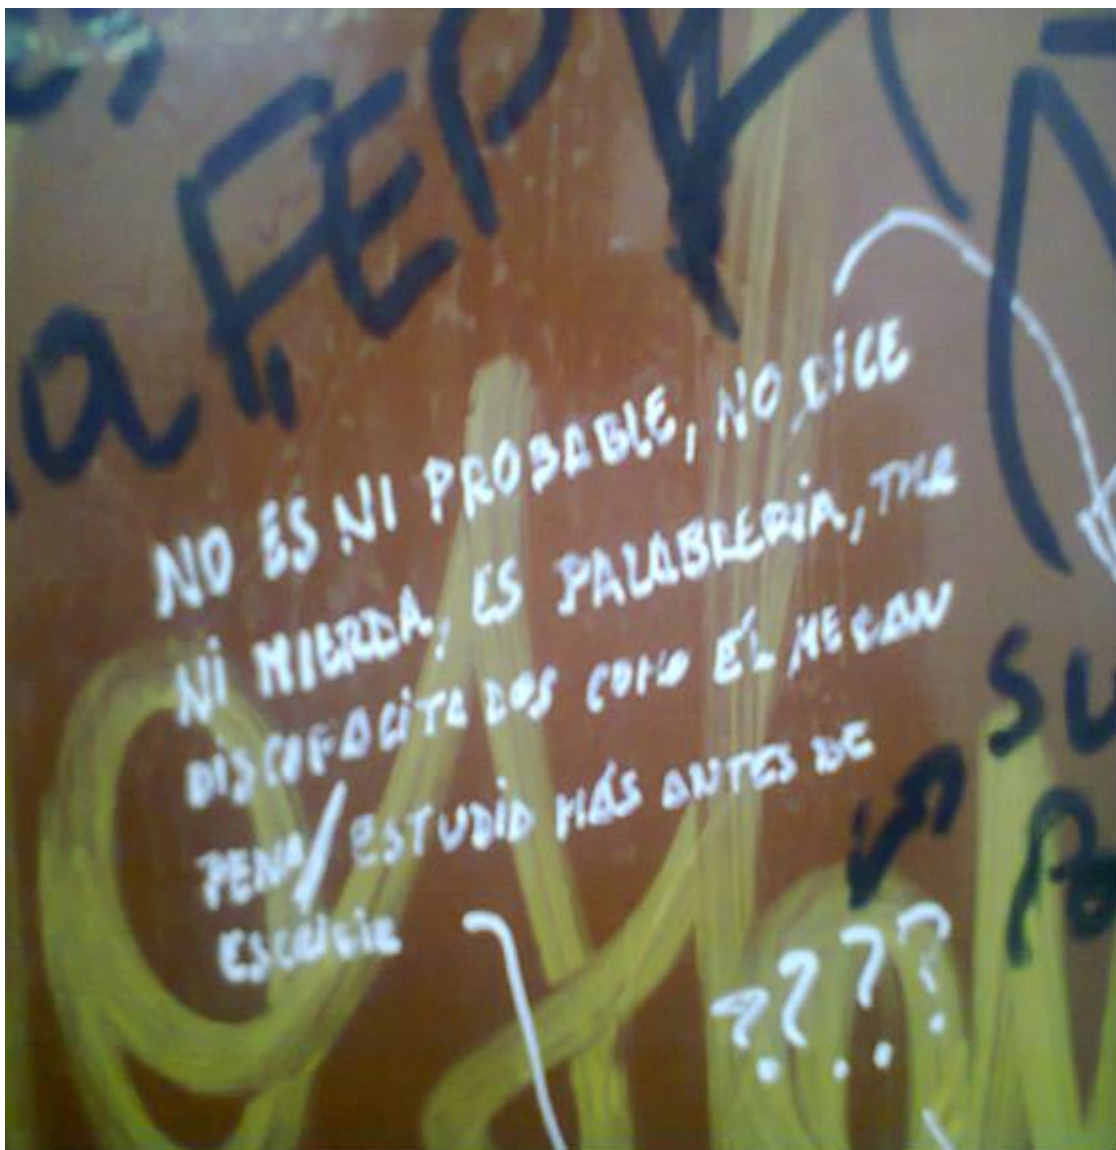 a FEP
NO ES NI PROBABLE, NO DICE
NI MIERDA, ES PALABRERÍA, TNR
DISCAPACITADOS COMO EL ME DAN
PENA/ESTUDIO MÁS ANTES DE
ESCRIBIR
SU
????